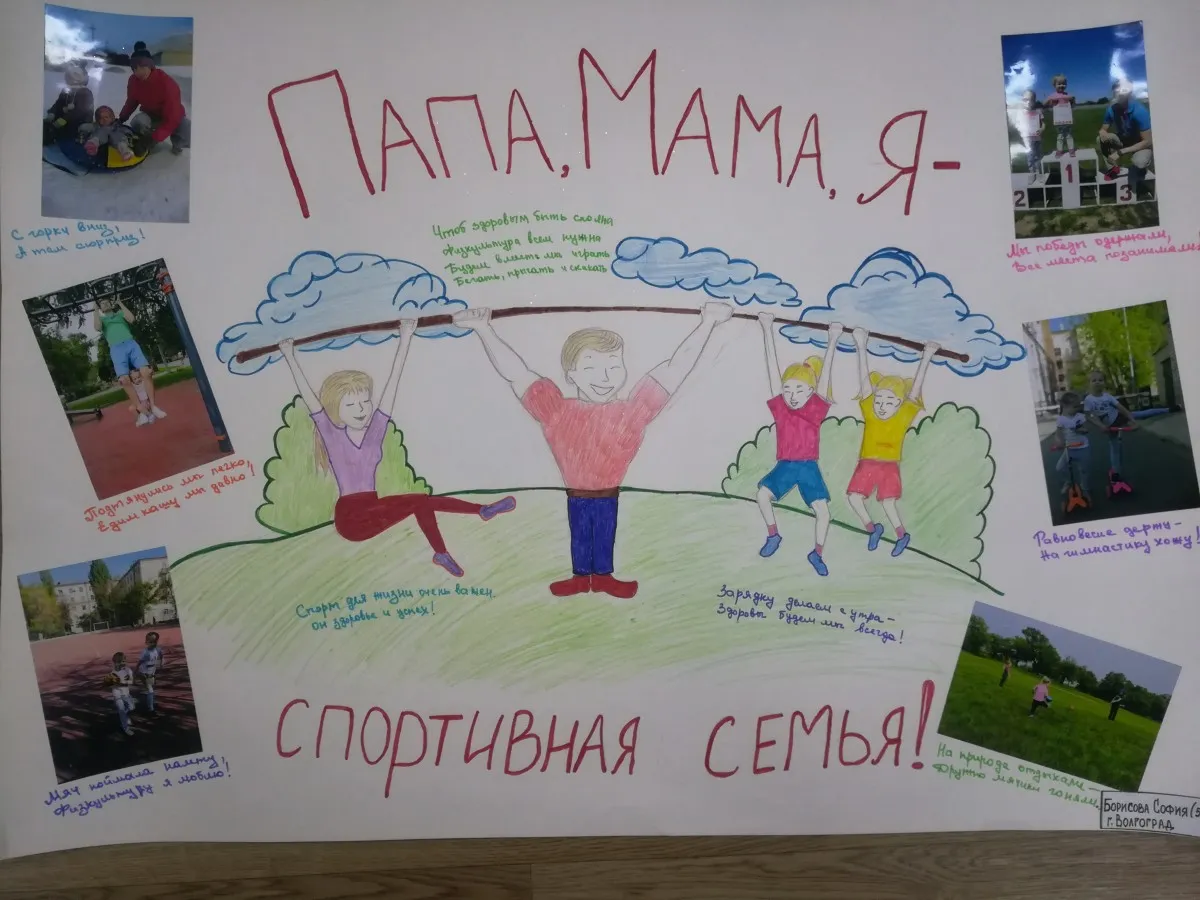 Папа, Мама, Я-
Чтоб здоровым быть сполна
Физкультура всем нужна
Будем вместе мы играть
Бегать, прыгать и скакать
С горки вниз,
А там сюрприз!
Мы победы одержали,
Все места позанимали
Подтянулись мы легко,
Едим кашу мы давно!
Равновесие держу-
На гимнастику хожу!
2 1 3
Спорт для жизни очень важен
он здоровье и успех!
Зарядку делаем с утра-
Здоровы будем мы всегда!
спортивная семья!
Мяч поймала
Физкультуру я люблю!
На природе отдыхали-
Дружно мячики гоняли.
Борисова София (5
г. Волгоград